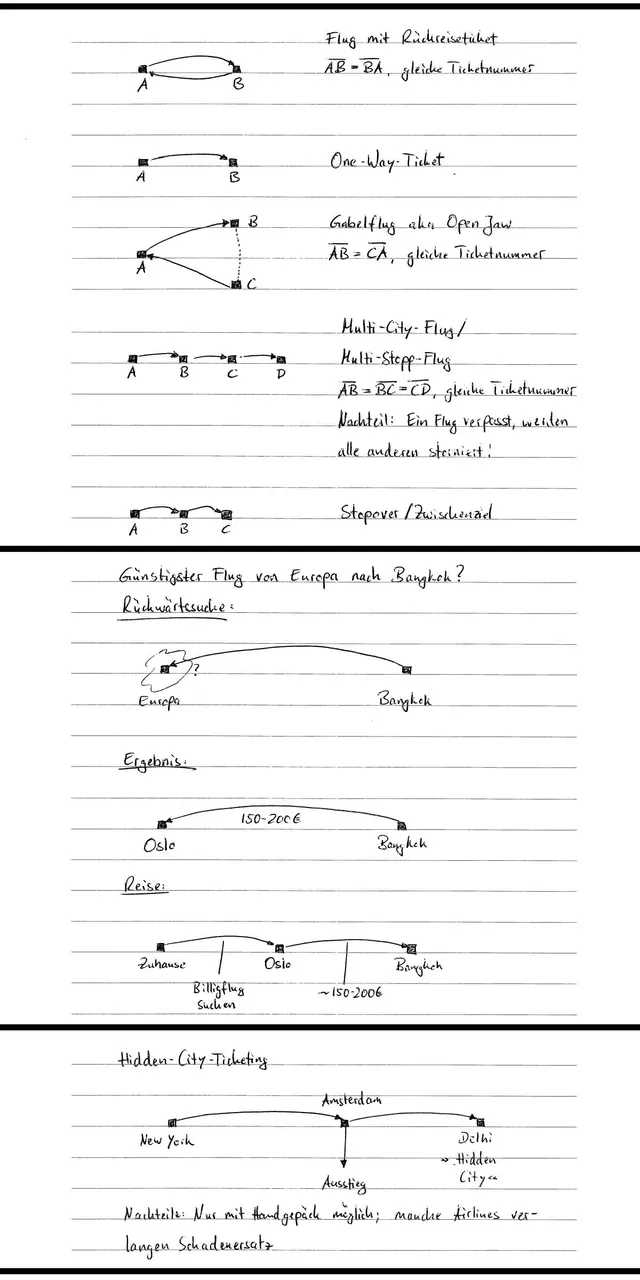 Flug mit Rückreiseticket
AB = BA, gleiche Ticketnummer
A B
One-Way-Ticket
A B
Gabelflug aka Open Jaw
AB = CA, gleiche Ticketnummer
B
A
C
Multi-City-Flug/
Multi-Stopp-Flug
AB = BC = CD, gleiche Ticketnummer
Nachteil: Ein Flug verpasst, werden
alle anderen storniert!
A B C D
Stopover/Zwischenziel
A B C
Günstigster Flug von Europa nach Bangkok?
Rückwärtssuche:
?
Europa Bangkok
Ergebnis:
150-200€
Oslo Bangkok
Reise:
Zuhause Oslo Bangkok
Billigflug
suchen
~150-200€
Hidden-City-Ticketing
Amsterdam
New York
Delhi
»Hidden
City«
Ausstieg
Nachteile: Nur mit Handgepäck möglich; manche Airlines ver-
langen Schadenersatz